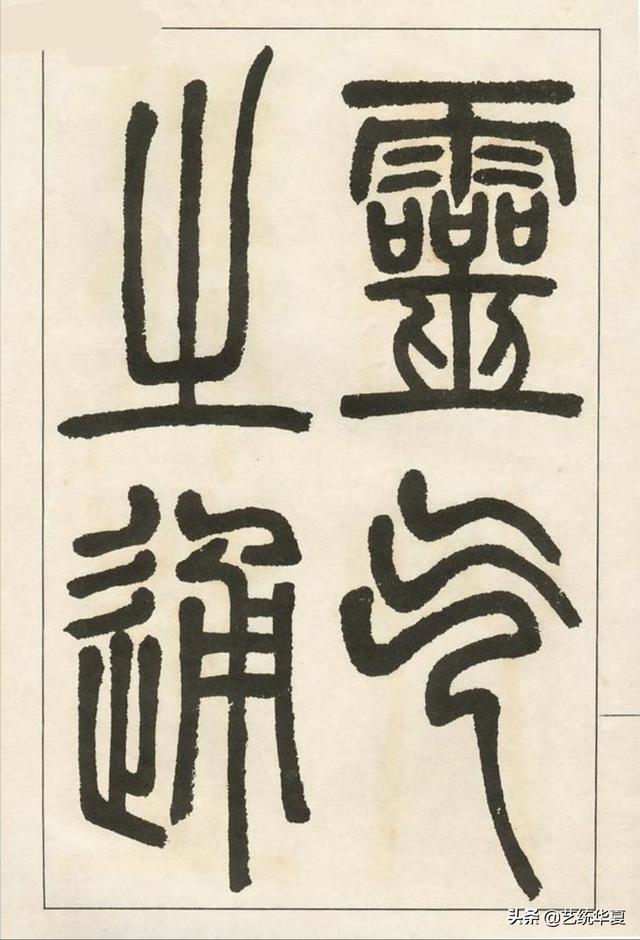 靈气
之通
头条 @艺统华夏